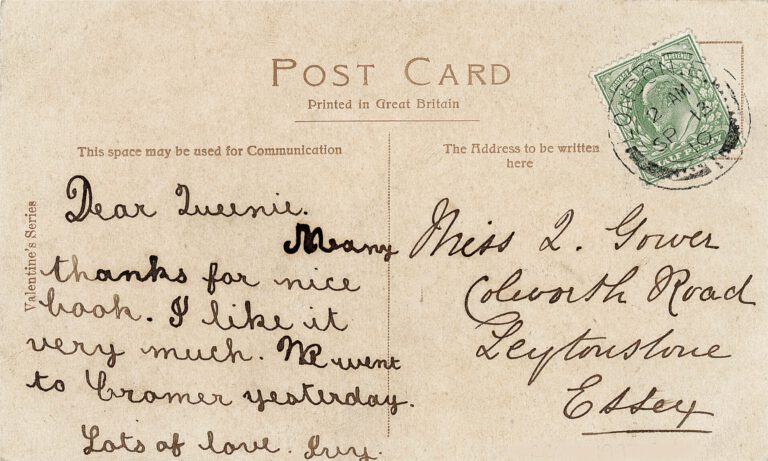 POST CARD
Printed in Great Britain
This space may be used for Communication
The Address to be written
here
Valentine's Series
Dear Queenie.
Many
thanks for nice
book. I like it
very much. We went
to Cromer yesterday.
Lots of love. Ivy.
Miss Q. Gower
Colworth Road
Leytonstone
Essex
12 AM
SP 13
10